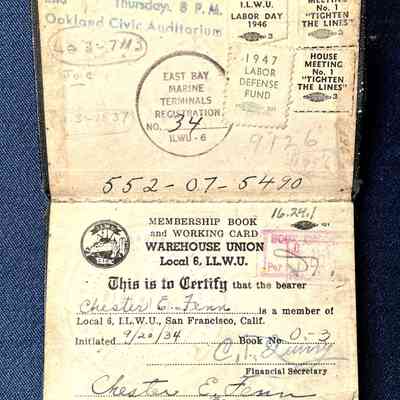 Thursday. 8 P.M.
Oakland Civic Auditorium
I.L.W.U.
LABOR DAY
1946
MEETING
No. 1
"TIGHTEN
THE LINES"
1947
LABOR
DEFENSE
FUND
HOUSE
MEETING
No. 1
"TIGHTEN
THE LINES"
Joe
EAST BAY
MARINE
TERMINALS
REGISTRATION
NO. 34
ILWU - 6
552-07-5490
MEMBERSHIP BOOK
and WORKING CARD
WAREHOUSE UNION
Local 6, I.L.W.U.
16.29.1
This is to Certify that the bearer
Chester E. Fenn is a member of
Local 6, I.L.W.U., San Francisco, Calif.
Initiated 9/20/34 Book No. 0-3
Financial Secretary
Chester E. Fenn